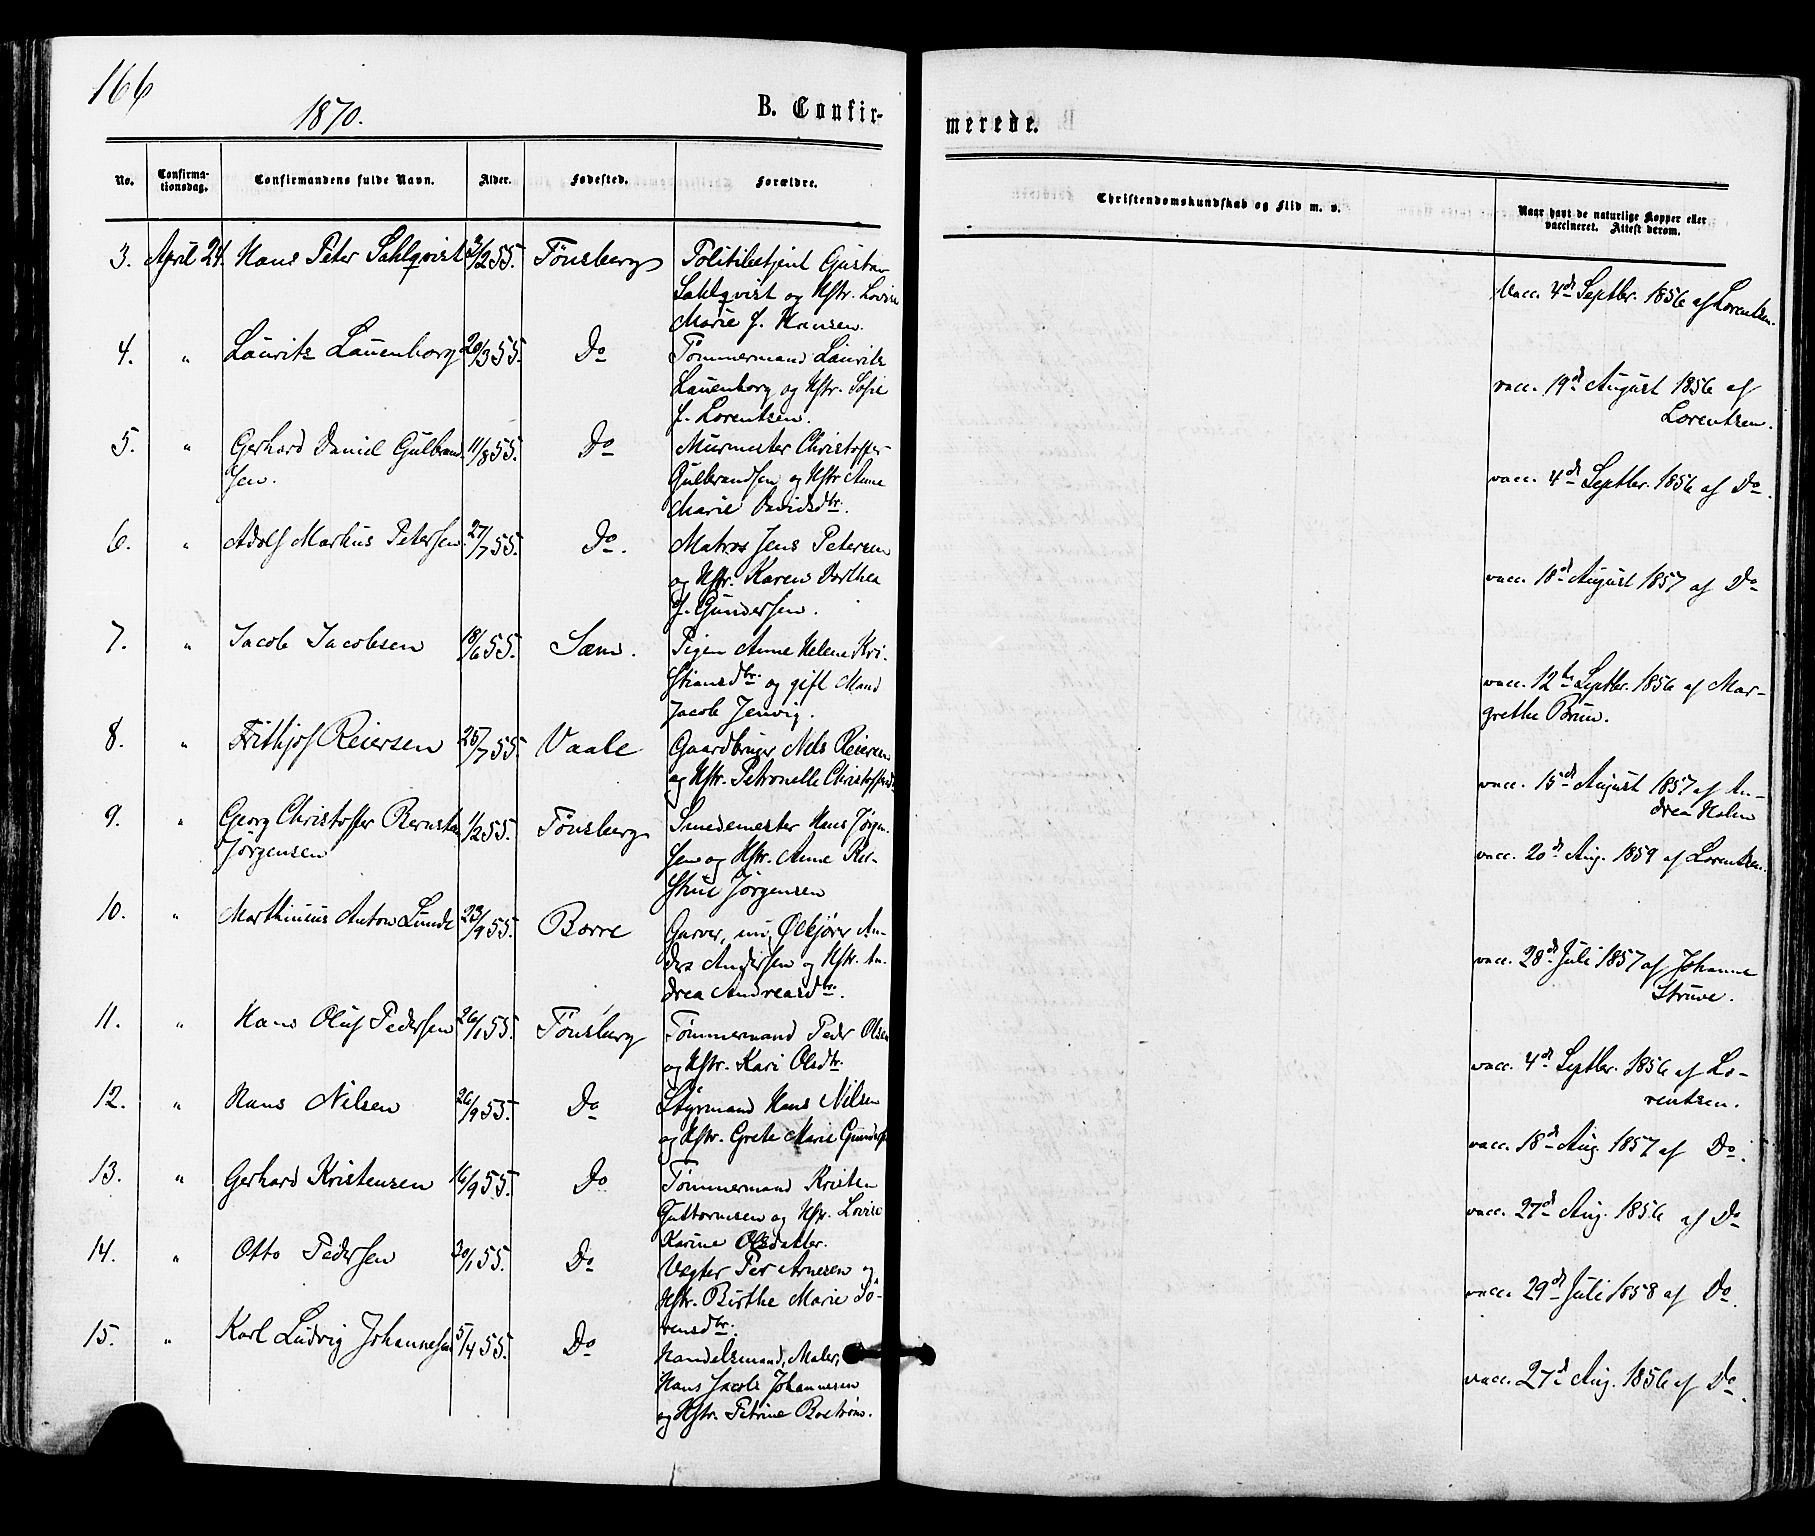 166
1870.
B. Confir-
merede.
No.
Confirma-
tionsdag.
Confirmandens fulde Navn.
Alder.
Fødested.
Forældre.
Christendomskundskab og Flid m. v.
Naar havt de naturlige Kopper eller
vaccineret. Attest derom.
3. April 24. Hans Peter Sahlqvist 3/2 55. Tønsberg Politibetjent Gustav
Sahlqvist og Hstr. Lovise
Marie f. Hansen.
Vacc. 4de Septbr. 1856 af Lorentzen.
4. " Lauritz Lauenborg 20/3 55. Do Tømmermand Lauritz
Lauenborg og Hstr. Sofie
f. Lorentzen.
vacc. 19de August 1856 af
Lorentzen.
5. " Gerhard Daniel Gulbrand- 11/8 55. Do Murmester Christoffer
sen. Gulbrandsen og Hstr Anne
Marie Davidsdtr.
vacc. 4de Septbr. 1856 af Do.
6. " Adolf Markus Petersen 27/7 55. Do. Matros Jens Petersen
og Hstr. Karen Dorthea
f. Gundersen.
vacc. 18de August 1857 af Do
7. " Jacob Jacobsen 18/6 55. Sem. Pigen Anne Helene Kri-
stiansdtr. og gift Mand
Jacob Jenvig.
vacc. 12te Septbr. 1856 af Mar-
grethe Brun.
8. " Frithjof Reiersen 25/7 55. Vaale Gaardbruger Nels Reiersen
og Hstr. Petronelle Christoffersd.
vacc. 15de August 1857 af An-
drea Holm
9. " Georg Christoffer Bernstan 1/2 55. Tønsberg Smedemester Hans Jørgen-
Jørgensen sen og Hstr. Anne Kri-
stine Jørgensen
vacc. 20de Aug. 1859 af Lorentzen.
10. " Marthinius Anton Lunde 23/9 55. Borre Garver, nu Ølkjører An-
ders Andersen og Hstr. An-
drea Andreasdtr.
vacc. 28de Juli 1857 af Johanne
Struve.
11. " Hans Oluf Pedersen 26/1 55. Tønsberg Tømmermand Peder Olsen
og Hstr. Kari Olsdtr.
vacc. 4de Septbr. 1856 af Lo-
rentzen.
12. " Hans Nilsen 26/9 55. Do Styrmand Hans Nilsen
og Hstr. Grete Marie Gundersd
vacc. 18de Aug. 1857 af Do.
13. " Gerhard Kristensen 16/9 55. Do Tømmermand Kristen
Guttormsen og Hstr. Lovise
Karine Olsdatter.
vacc. 27de Aug. 1856 af Do
14. " Otto Pedersen 20/1 55. Do Vægter Per Arnesen og
Hstr. Birthe Marie Sø-
rensdtr.
vacc. 29de Juli 1858 af Do.
15. " Karl Ludvig Johannesen 5/4 55. Do Handelsmand, Maler,
Hans Jacob Johannesen
og Hstr. Petrine Bostrøm.
vacc. 27de Aug. 1856 af Do.